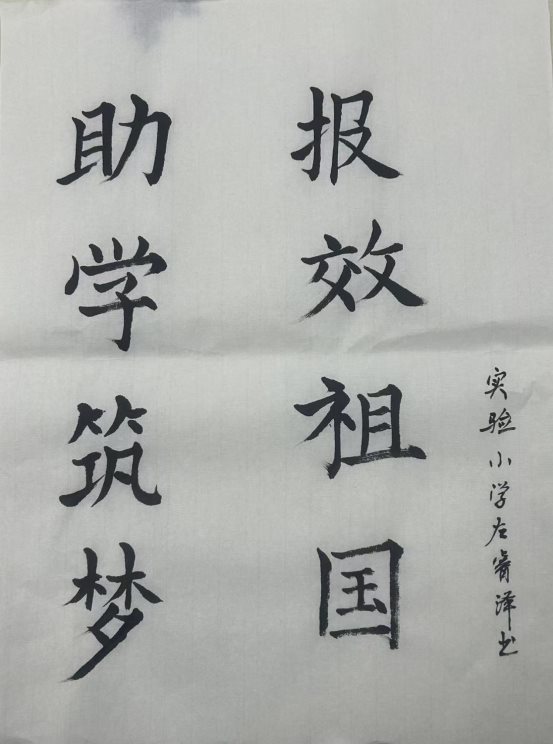 助学筑梦
报效祖国
实验小学左睿泽书